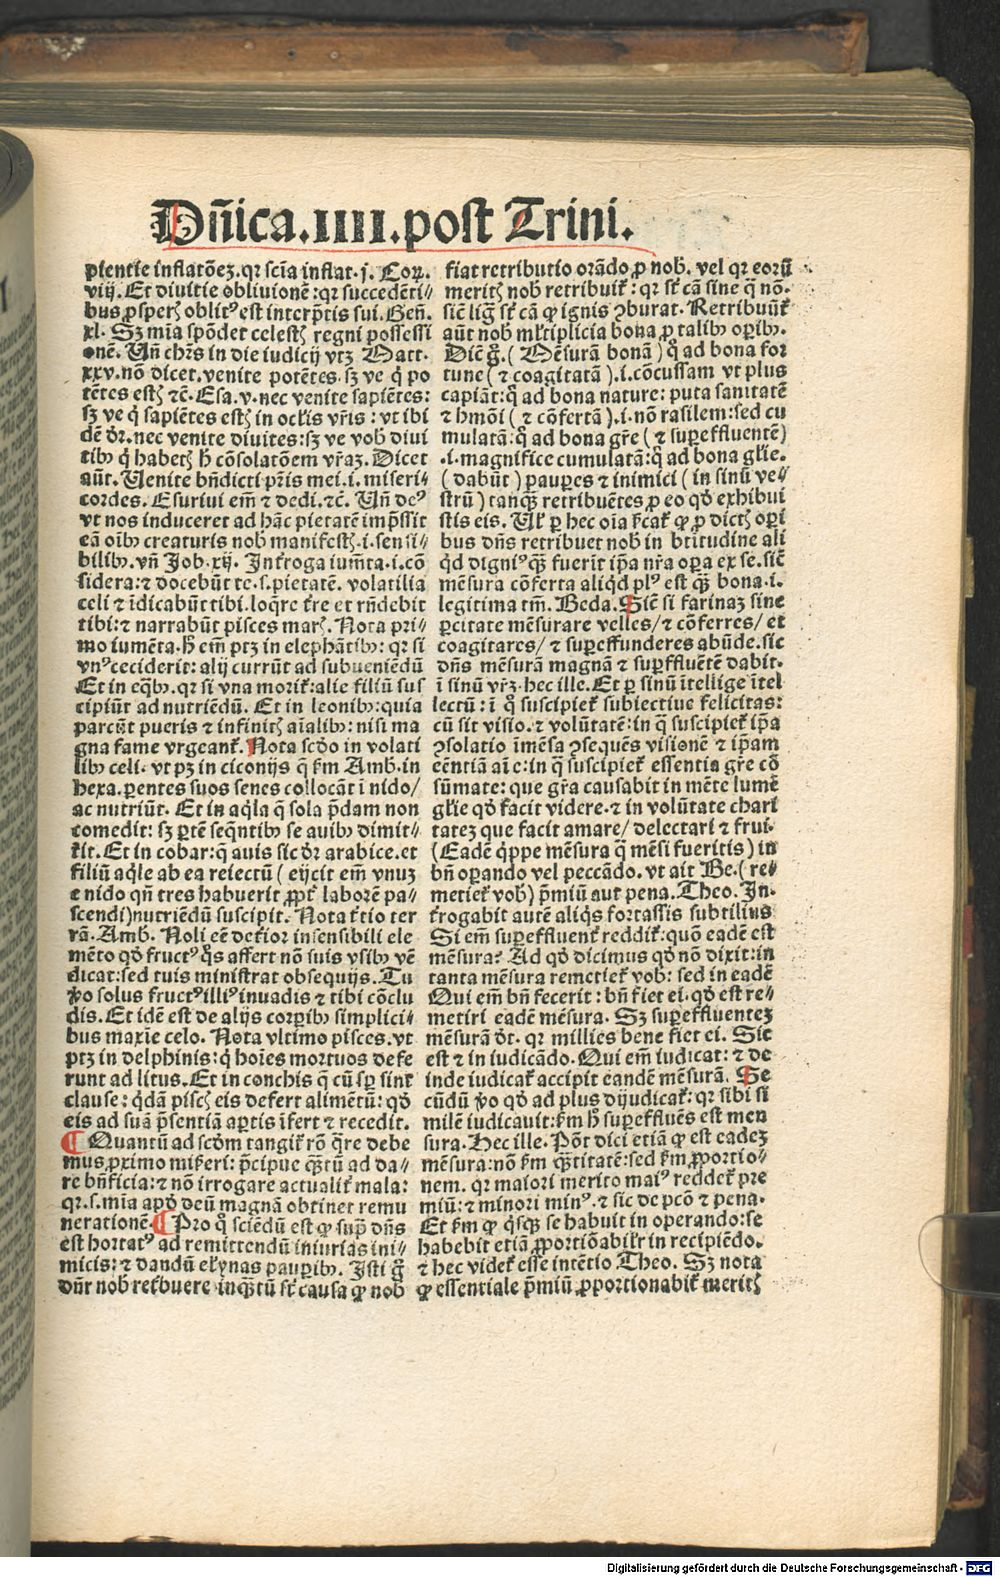 Dñica.IIII.post Trini.
pientie inflatõeꝫ.qꝛ sciã inflat.j. Coꝝ.
viij. Et diuitie obliuionẽ:qꝛ succedẽti⸗
bus ꝓsperꝭ oblitꝰ est interpꝛtis sui. Geñ.
xl. Sꝫ mĩa spõdet celestꝭ regni possessi
onẽ. Uñ chꝛs in die iudicij vtꝫ Matt.
xxv.nõ dicet.venite potẽtes.sꝫ ve q̇ po
tẽtes estꝭ ⁊c̃. Esa.v.nec venite sapiẽtes:
sꝫ ve q̇ sapiẽtes estꝭ in ocĺis vr̃is : vt ibi
dẽ dr̃.nec venite diuites:sꝫ ve vob̃ diui
tibꝫ q̇ habetꝭ h̃ cõsolatõem vr̃aꝫ. Dicet
aũt. Uenite bñdicti pr̃is mei.i.miseri⸗
cordes. Esuriui em̃ ⁊ dedi.⁊c̃. Uñ deꝰ
vt nos induceret ad hãc pietatẽ imp̃ssit
eã oĩbꝫ creaturis nob̃ manifestꝭ.i.sensi⸗
bilibꝫ.vñ Job.xij. Int̃roga iumẽta.i.cõ
sidera:⁊ docebũt te.s.pietatẽ. volatilia
celi ⁊ ĩdicabũt tibi.loq̃re t̃re et rñdebit
tibi:⁊ narrabũt pisces marꝭ. Nota pri⸗
mo iumẽta.h̃ em̃ ptꝫ in elephãtibꝫ: qꝛ si
vnꝰceciderit: alij currũt ad subueniẽdũ
Et in eq̃bꝫ.qꝛ si vna morit̃:alie filiũ sus
cipiũt ad nutriẽdũ. Et in leonibꝫ:quia
parcũt pueris ⁊ infinitꝭ aĩalibꝫ: nisi ma
gna fame vrgeant̃. Nota scd̃o in volati
libꝫ celi. vt pꝫ in ciconijs q̃ f̃m Amb.in
Hexa.parentes suos senes collocãt ĩ nido/
ac nutriũt. Et in aq̃la q̃ sola p̃dam non
comedit: sꝫ ꝑtẽ seq̃ntibꝫ se auibꝫ dimit⸗
tit. Et in cobar:q̃ auis sic dr̃ arabice.et
filiũ aq̃le ab ea reiectũ ( eijcit em̃ vnuꝫ
e nido qñ tres habuerit ꝓpt̃ laborẽ pa⸗
scendi)nutriẽdũ suscipit. Nota t̃tio ter
rã.Amb. Noli eẽ det̃ior insensibili ele
mẽto qd̃ fructꝰ q̃s affert nõ suis vsibꝫ vẽ
dicat:sed tuis ministrat obsequijs. Tu
ṽo solus fructꝰillĩꝰinuadis ⁊ tibi cõclu
dis. Et idẽ est de alijs corꝑibꝫ simplici⸗
bus maxĩe celo. Nota vltimo pisces.vt
ptꝫ in delphinis:q̇ hoĩes mortuos defe
runt ad litus.Et in conchis q̃ cũ sꝑ sint
clause: q̃dã piscꝭ eis defert alimẽtũ: qd̃
eis ad suã p̃sentiã aꝑtis ĩfert ⁊ recedit.
¶ Quantũ ad scd̃m tangit̃ rõ q̃re debe
mus ꝓximo mis̃eri: p̃cipue q̃ꝫtũ ad da⸗
re bñficia:⁊ nõ irrogare actualit̃ mala:
qꝛ.s.mĩa apd̃ deũ magnã obtinet remu
nerationẽ.¶Pro q̃ sciẽdũ est ꝙ sup̃ dñs
est hortatꝰ ad remittendũ iniurias ini⸗
micis:⁊ dandũ elẏnas pauꝑibꝫ. Isti g̃
dñr nob̃ ret̃buere inq̃ꝫtũ st̃ causa ꝙ nob̃
fiat retributio orãdo ꝓ nob̃. vel qꝛ eorũ
meritꝭ nob̃ retribuit̃: qꝛ st̃ cã sine q̃ nõ.
sic̃ lig̃ st̃ cã ꝙ ignis ꝯburat. Retribuũt̃
aũt nob̃ ml̃tiplicia bona ꝓ talibꝫ oꝑibꝫ.
Dic̃ g̃.( Mẽsurã bonã) q̃ ad bona for
tune ( ⁊ coagitatã ).i.cõcussam vt plus
capiãt:q̃ ad bona nature: puta sanitatẽ
⁊ hmõi ( ⁊ cõfertã).i.nõ rasilem:sed cu
mulatã:q̃ ad bona gr̃e ( ⁊ suꝑeffluentẽ)
.i.magnifice cumulatã:q̃ ad bona gl̃ie.
( dabũt ) pauꝑes ⁊ inimici ( in sinũ ve⸗
strũ) tanq̃ꝫ retribuẽtes ꝓ eo qd̃ exhibui
stis eis. Ul̃ ꝑ hec oĩa t̃cat̃ ꝙ ꝓ dictꝭ oꝑi
bus dñs retribuet nob̃ in btĩtudine ali
q̃d digniꝰq̃ꝫ fuerit ip̃a nr̃a oꝑa ex se.sic̃
mẽsura cõferta aliq̃d plꝰ est q̃ꝫ bona.i.
legitima tm̃. Beda.Sic̃ si farinaꝫ sine
ꝑcitate mẽsurare velles/⁊ cõferres/ et
coagitares/ ⁊ suꝑeffunderes abũde.sic
dñs mẽsurã magnã ⁊ suꝑffluẽtẽ dabit.
ĩ sinũ vr̃ꝫ.hec ille. Et ꝑ sinũ ĩtellige ĩtel
lectũ: ĩ q̃ suscipiet̃ subiectiue felicitas:
cũ sit visio.⁊ volũtatẽ:in q̃ suscipiet̃ ip̃a
ꝯsolatio ĩmẽsa ꝯsequẽs visionẽ ⁊ ip̃am
eẽntiã aĩe:in q̃ suscipiet̃ essentia gr̃e cõ
sũmate: que gr̃a causabit in mẽte lumẽ
gl̃ie qd̃ facit videre.⁊ in volũtate chari
tateꝫ que facit amare/ delectari ⁊ frui.
(Eadẽ q̃ppe mẽsura q̃ mẽsi fueritis) in
bñ oꝑando vel peccãdo. vt ait Be.( re⸗
metiet̃ vob̃) p̃miũ aut pena. Theo. In⸗
t̃rogabit autẽ aliq̃s fortassis subtilius
Si em̃ suꝑeffluent̃ reddit̃:quõ eadẽ est
mẽsura? Ad qd̃ dicimus qd̃ nõ dixit:in
tanta mẽsura remetiet̃ vob̃: sed in eadẽ
Qui em̃ bñ fecerit : bñ fiet ei. qd̃ est re⸗
metiri eadẽ mẽsura. Sꝫ suꝑeffluenteꝫ
mẽsurã dr̃. qꝛ millies bene fiet ei. Sic
est ⁊ in iudicãdo. Qui em̃ iudicat: ⁊ de
inde iudicat̃ accipit eandẽ mẽsurã. Se
cũdũ ṽo qd̃ ad plus dijudicat̃: qꝛ sibi si
milẽ iudicauit:f̃m h̃ suꝑeffluẽs est men
sura. Hec ille. Põt dici etiã ꝙ est eadeꝫ
mẽsura:nõ f̃m q̃ꝫtitatẽ:sed f̃m ꝓportio⸗
nem. qꝛ maiori merito maiꝰ reddet̃ pre
miũ:⁊ minori minꝰ.⁊ sic de pcõ ⁊ pena.
Et f̃m ꝙ q̃sq̃ꝫ se habuit in operando:se
habebit etiã ꝓportiõabilr̃ in recipiẽdo.
⁊ hec videt̃ esse intẽtio Theo. Sꝫ nota
ꝙ essentiale p̃miũ ꝓportionabilt̃ meritꝭ
Digitalisierung gefördert durch die Deutsche Forschungsgemeinschaft - DFG